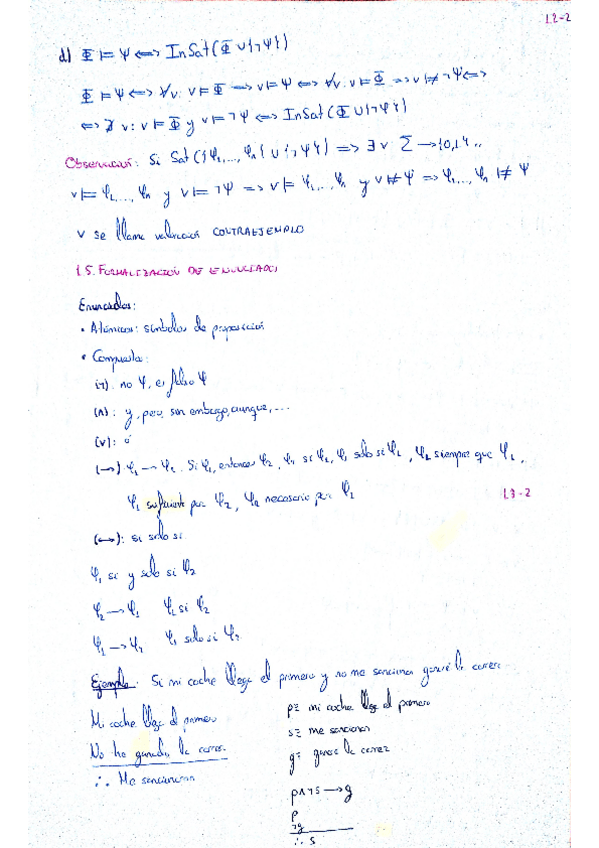 L2-2
d) Φ ⊨ Ψ ⟺ InSat(Φ ∪ {¬Ψ})
Φ ⊨ Ψ ⟺ ∀v: v ⊨ Φ ⟹ v ⊨ Ψ ⟺ ∀v: v ⊨ Φ ⟹ v ⊭ ¬Ψ ⟺
⟺ ∄ v: v ⊨ Φ y v ⊨ ¬Ψ ⟺ InSat(Φ ∪ {¬Ψ})
Observación: Si Sat({φ1,..., φn} ∪ {¬Ψ}) ⟹ ∃ v: Σ → {0,1} ..
v ⊨ φ1,..., φn y v ⊨ ¬Ψ ⟹ v ⊨ φ1,..., φn y v ⊭ Ψ ⟹ φ1,..., φn ⊭ Ψ
v se llama valoración CONTRAEJEMPLO
1.5. FORMALIZACIÓN DE ENUNCIADOS
Enunciados:
• Atómicos: símbolos de proposición
• Compuesta:
(¬): no φ, es falso φ
(∧): y, pero, sin embargo, aunque, ...
(∨): ó
(→) φ1 → φ2. Si φ1, entonces φ2, φ2 si φ1, φ1 solo si φ2, φ2 siempre que φ1,
φ1 suficiente para φ2, φ2 necesario para φ1
L3-2
(↔): si solo si
φ1 si y solo si φ2
φ2 → φ1 φ1 si φ2
φ1 → φ2 φ1 solo si φ2
Ejemplo: Si mi coche llega el primero y no me sancionan ganaré la carrera
Mi coche llega el primero
No he ganado la carrera
∴ Me sancionaron
p ≡ mi coche llega el primero
s ≡ me sancionan
g ≡ ganar la carrera
p∧¬s → g
p
¬g
∴ s